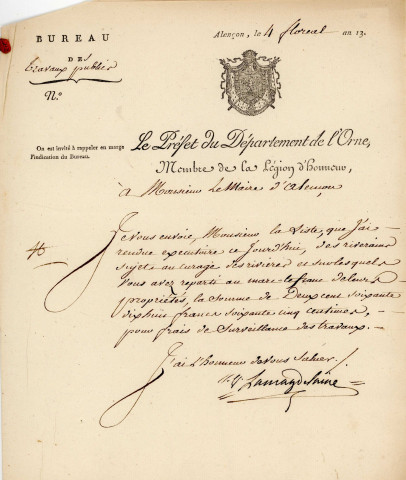 BUREAU
DES
travaux publics
N.º
Alençon, le 4 floréal an 13.
On est invité à rappeler en marge
l'indication du Bureau.
Le Préfet du Département de l'Orne,
Membre de la Légion d'honneur,
à Monsieur Le Maire d'alençon,
Je vous envoie, Monsieur la Liste, que j'ai
rendue executoire ce Jourd'hui, des riverains
sujets au curage des rivieres et sur lesquels
vous avez reparti au marc-le-franc de leurs
propriétés, la Somme de Deux cens soixante
dix huit francs soixante cinq centimes,
pour frais de Surveillance des travaux.
J'ai l'honneur de vous Saluer.
Lamagdelaine